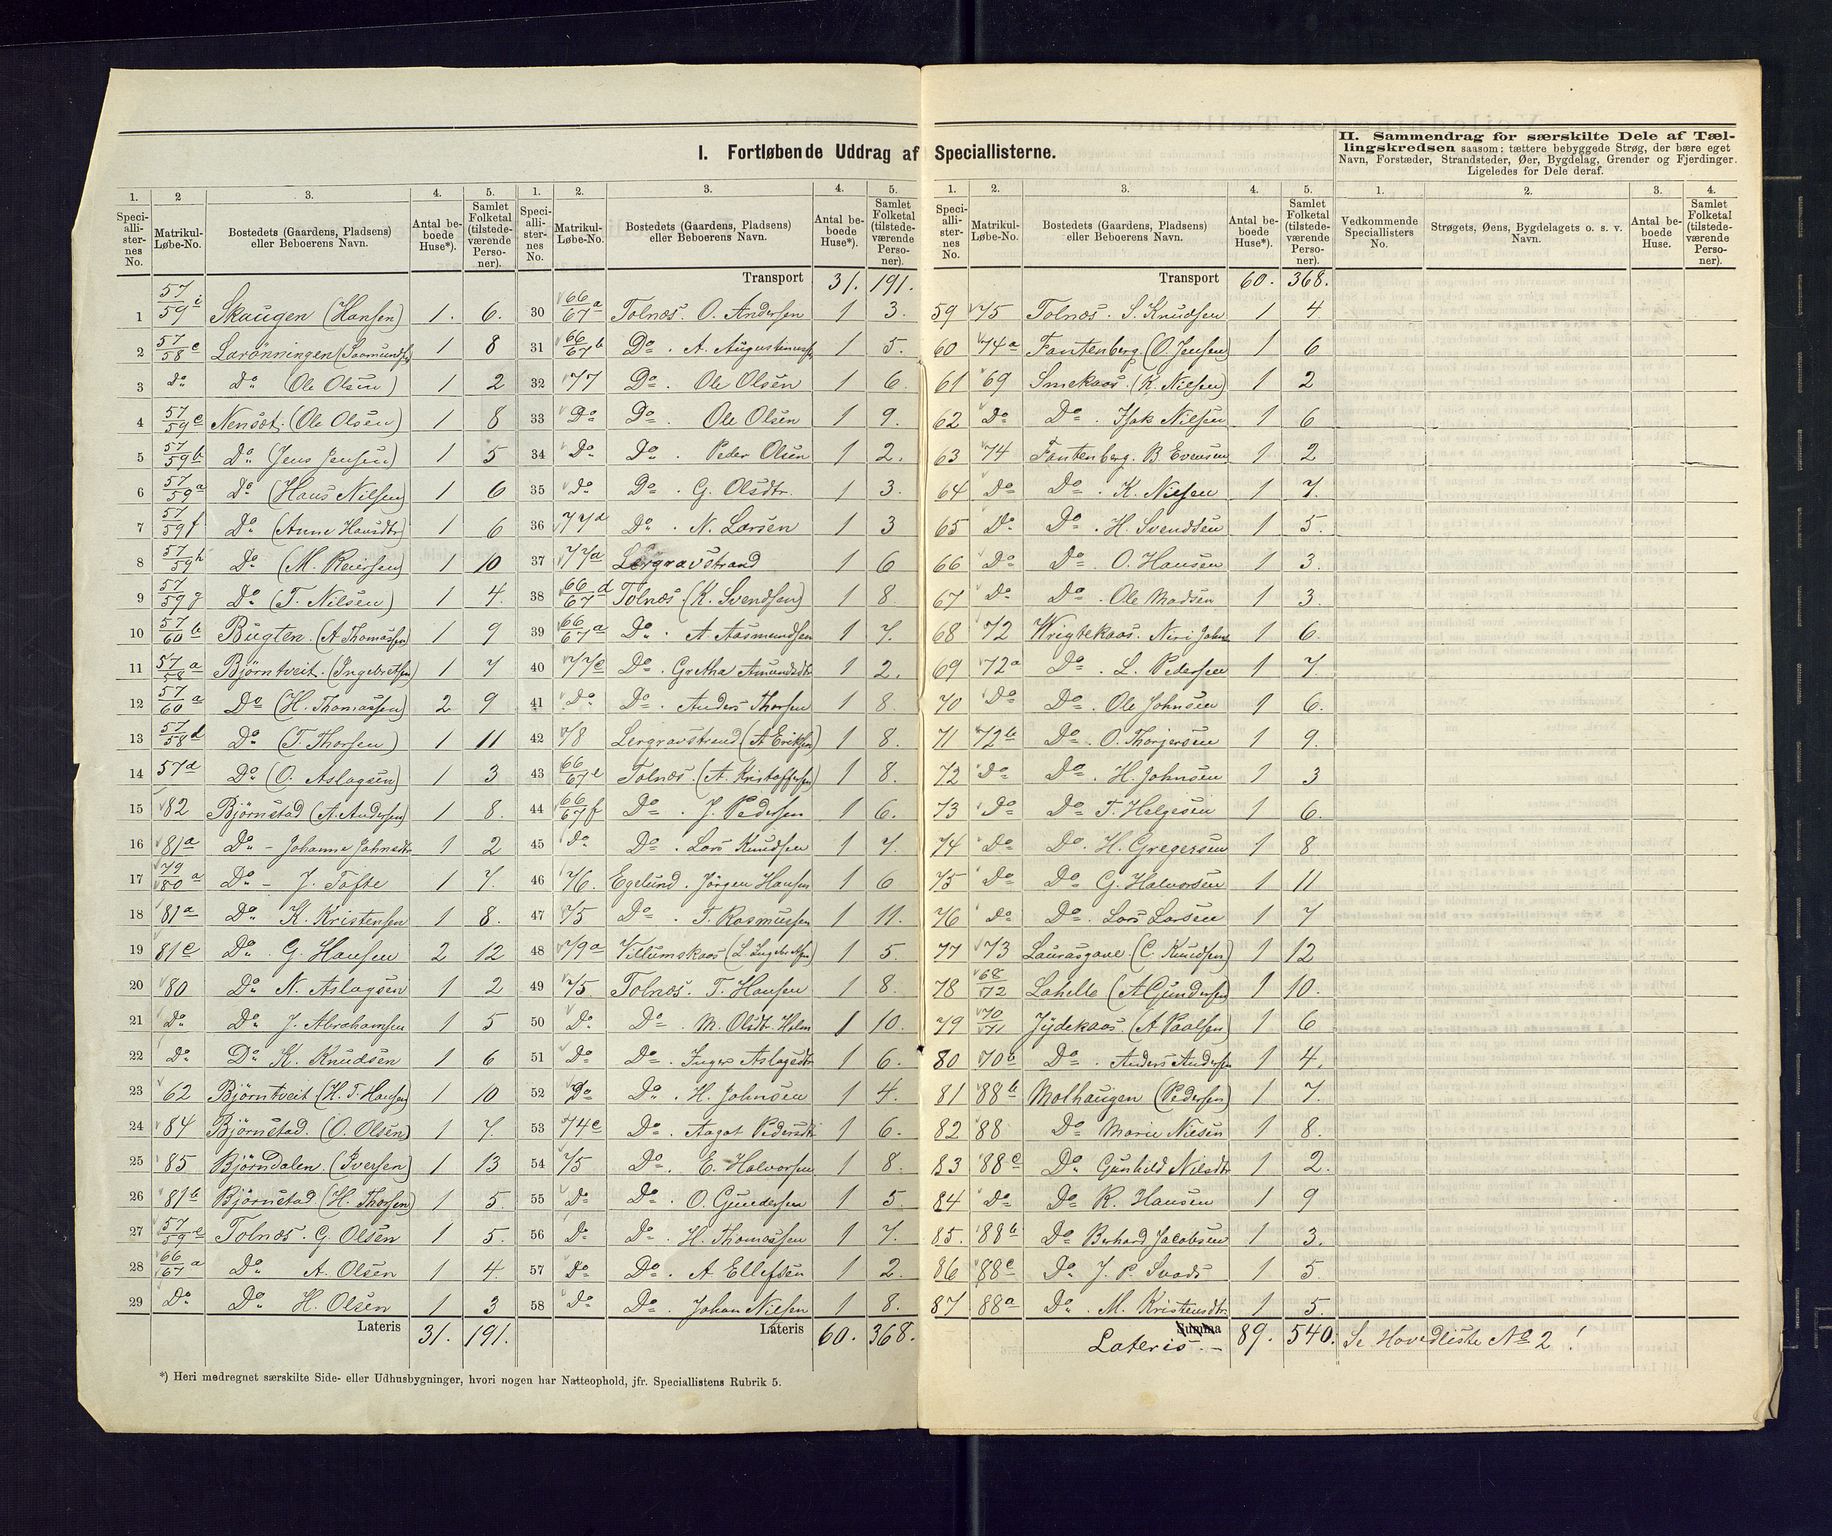 I. Fortløbende Uddrag af Speciallisterne.
II. Sammendrag for særskilte Dele af Tællingskredsen saasom: tættere bebyggede Strøg, der bære eget Navn, Forstæder, Strandsteder, Øer, Bygdelag, Grender og Fjerdinger. Ligeledes for Dele deraf.
1. 2 3. 4. 5. 1. 2. 3. 4. 5.
Speciallisternes No. Matrikul-Løbe-No. Bostedets (Gaardens, Pladsens) eller Beboerens Navn. Antal beboede Huse*). Samlet Folketal (tilstedeværende Personer).
Speciallisternes No. Matrikul-Løbe-No. Bostedets (Gaardens, Pladsens) eller Beboerens Navn. Antal beboede Huse*). Samlet Folketal (tilstedeværende Personer).
1 57/59 i Skaugen (Hansen) 1. 6.
2 57/58 c Larønningen (Saamundsen 1 8
3 Do Do (Ole Olsen) 1 2
4 57/59 c Nensæt. (Ole Olsen) 1 8
5 57/59 b Do (Jens Jensen) 1 5
6 57/59 a Do (Hans Nilsen) 1 6
7 57/59 f Do (Anne Hansdtr 1 6
8 57/59 h Do (M. Reiersen) 1 10
9 57/59 g Do (T. Nilsen) 1 4.
10 57/60 b Bugten. (A Thomassen) 1 9
11 57/58 a Bjørntveit. (Ingebretsen) 1 7
12 57/60 a Do (H. Thomassen) 2 9
13 57/58 d Do (T. Thorsen) 1 11
14 57d Do (O. Aslagsen) 1 3
15 82 Bjørnstad (A. Andersen) 1 8.
16 81a Do - Johanne Johnsdtr 1 2
17 79/80 a Do - J. Tofte 1 7.
18 81a Do K. Kristensen 1 8.
19 81c Do . G. Hansen 2 12
20 80 Do N. Aslagsen 1 2
21 Do Do J. Abrahamsen 1 5
22 Do Do K. Knudsen 1 6
23 62 Bjørntveit (H. T. Hansen) 1 10
24 84 Bjørnstad. (O. Olsen) 1 7.
25 85 Bjørndalen. (Iversen) 1 13
26 81b Bjørnstad (H. Thorsen) 1 5.
27 57/59 e Tolnæs. G. Olsen 1 5.
28 66/67 a Do A. Olsen 1 4.
29 Do Do H. Olsen 1 3
Lateris 31. 191.
Transport 31. 191.
30 66/67 a Tolnæs. O. Andersen 1 3.
31 66/67 b Do . A. Augustinussen 1 5.
32 77 Do . Ole Olsen 1 6.
33 Do Do . Ole Olsen 1 9.
34 Do Do . Peder Olsen 1 2.
35 Do Do . G. Olsdtr. 1 3.
36 77d Do . N. Larsen 1 3
37 77a Lergravstrand 1 6
38 66/67 d Tolnæs. (K. Svendsen) 1 8
39 66/67 a Do . A. Aasmundsen 1 7.
40 77c Do . Gretha Amundsdtr 1 2.
41 Do Do . Anders Thorsen 1 8.
42 78 Lergravstrand (A Eriksen) 1 8.
43 66/67 e Tolnæs. (A. Kristoffersen) 1 8.
44 66/67 f Do . J. Pedersen 1 6.
45 Do Do . Lars Knudsen 1 7.
46 76. Egelund. Jörgen Hansen 1 6
47 75 Do . T. Rasmussen 1 11.
48 79a Villumskaas (L. Ingebretsen) 1 5.
49 75. Tolnæs. T. Hansen 1 8.
50 Do Do . M. Olsdtr. Holm 1 10.
51 Do Do . Inger Aslagsdtr 1 6.
52 Do Do . H. Johnsen 1 4.
53 74c Do . Aagot Pedersdtr 1 6.
54 75 Do . E. Halvorsen 1 8.
55 Do Do . O. Gundersen 1 5.
56 Do Do . H. Thomassen 1 7.
57 Do Do . A Ellefsen 1 2.
58 Do Do . Johan Nilsen 1 8.
Lateris 60. 368.
*) Heri medregnet særskilte Side- eller Udhusbygninger, hvori nogen har Natteophold, jfr. Speciallistens Rubrik 5.
1. 2. 3. 4. 5. 1. 2. 3. 4.
Speciallisternes No. Matrikul-Løbe-No. Bostedets (Gaardens, Pladsens) eller Beboerens Navn. Antal beboede Huse*). Samlet Folketal (tilstedeværende Personer).
Vedkommende Speciallisters No. Strøgets, Øens, Bygdelagets o. s. v. Navn. Antal beboede Huse. Samlet Folketal (tilstedeværende Personer).
Transport 60. 368.
59 75 Tolnæs. S. Knudsen 1 4
60 74a Fantenberg. (O. Jensen) 1 6
61 69 Smekaas. (K. Nilsen) 1 2
62 Do Do . Isak Nilsen 1 6
63 74 Fantenberg. B. Evensen 1 2
64 Do Do . K. Nilsen 1 7.
65 Do Do . H. Svendsen 1 5.
66 Do Do . O. Hansen 1 3.
67 Do Do . Ole Madsen 1 3.
68 72 Wrigtekaas. Neri Johns 1 6.
69 72a Do . L. Pedersen 1 7.
70 Do Do . Ole Johnsen 1 6.
71 72b Do . O. Thorjersen 1 9.
72 Do Do . H. Johnsen 1 3
73 Do Do . T. Helgesen 1 6.
74 Do Do . H. Gregersen 1 8
75 Do Do G. Halvorsen 1 11
76 Do Do . Lars Larsen 1 7
77 73 Laurasgave. (C. Knudsen) 1 12
78 68/72 Lahelle (A Gundersen 1 10.
79 70/71 Jydekaas. (A. Paalsen) 1 6
80 70b Do . Anders Andersen 1 4.
81 88b Molhaugen (Pedersen) 1 7.
82 88 Do Marie Nilsen 1 8.
83 88c Do . Gunhild Nilsdtr 1 2.
84 Do Do R. Hansen 1 9
85. 88b Do Berhard Jacobsen 1 3.
86 88c Do J. P. Svads 1 5.
87 88a Do . M. Kristensdtr. 1 5.
Summa
Lateris. 89. 540. Se Hovedliste No 2!